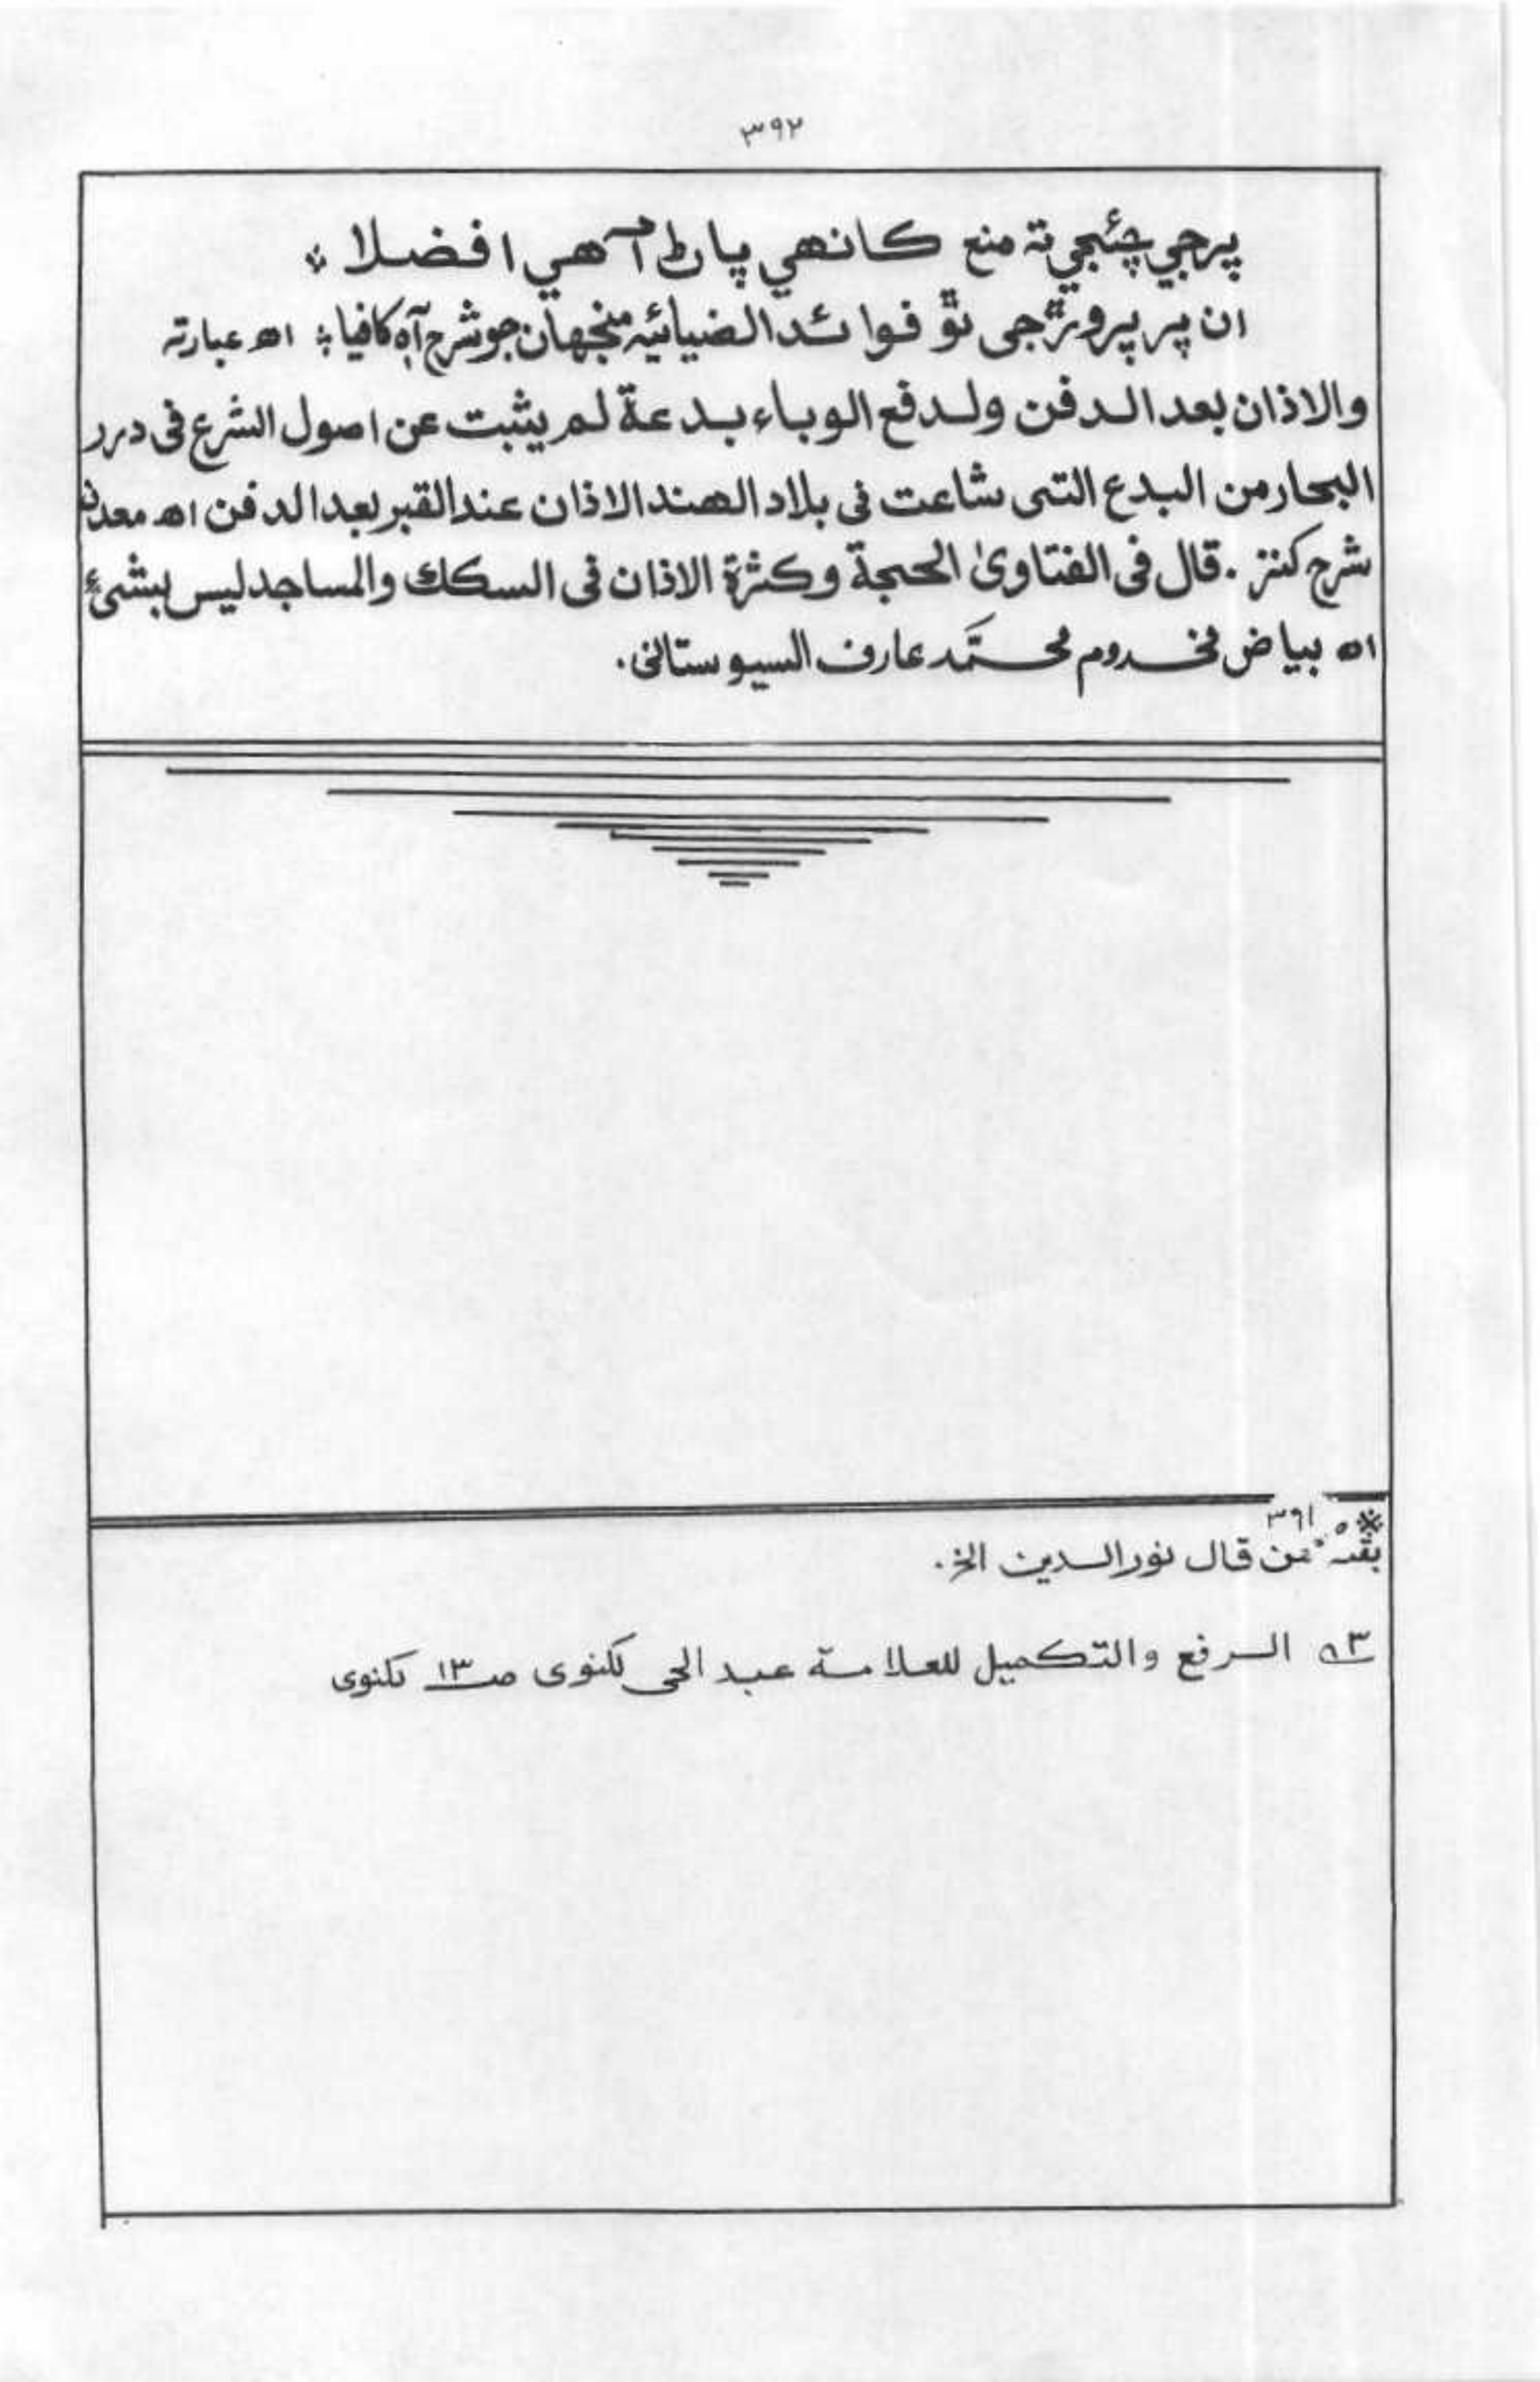 ٣٩٢
پرجي چئجي تہ منع کانھي پاڻ آھي افضلا ؛
ان پر پروڙجی ٿو فوائد الضيائيہ منجھان جو شرح آہ کافيا ؛ اھ عبارتہ
والاذان بعد الدفن ولدفع الوباء بدعة لم يثبت عن اصول الشرع فى درر
البحار من البدع التى شاعت فى بلاد الهند الاذان عند القبر بعد الدفن اھ معدن
شرح كنز . قال فى الفتاوىٰ الحجة وكثرة الاذان فى السكك والمساجد ليس بشئ
اھ بياض مخدوم محمَّد عارف السيوستانى .
٣٩١
※ بقیہ من قال نور الدين الخ .
٣ الرفع والتكميل للعلامة عبد الحى لكنوى صـ١٣ لكنوى